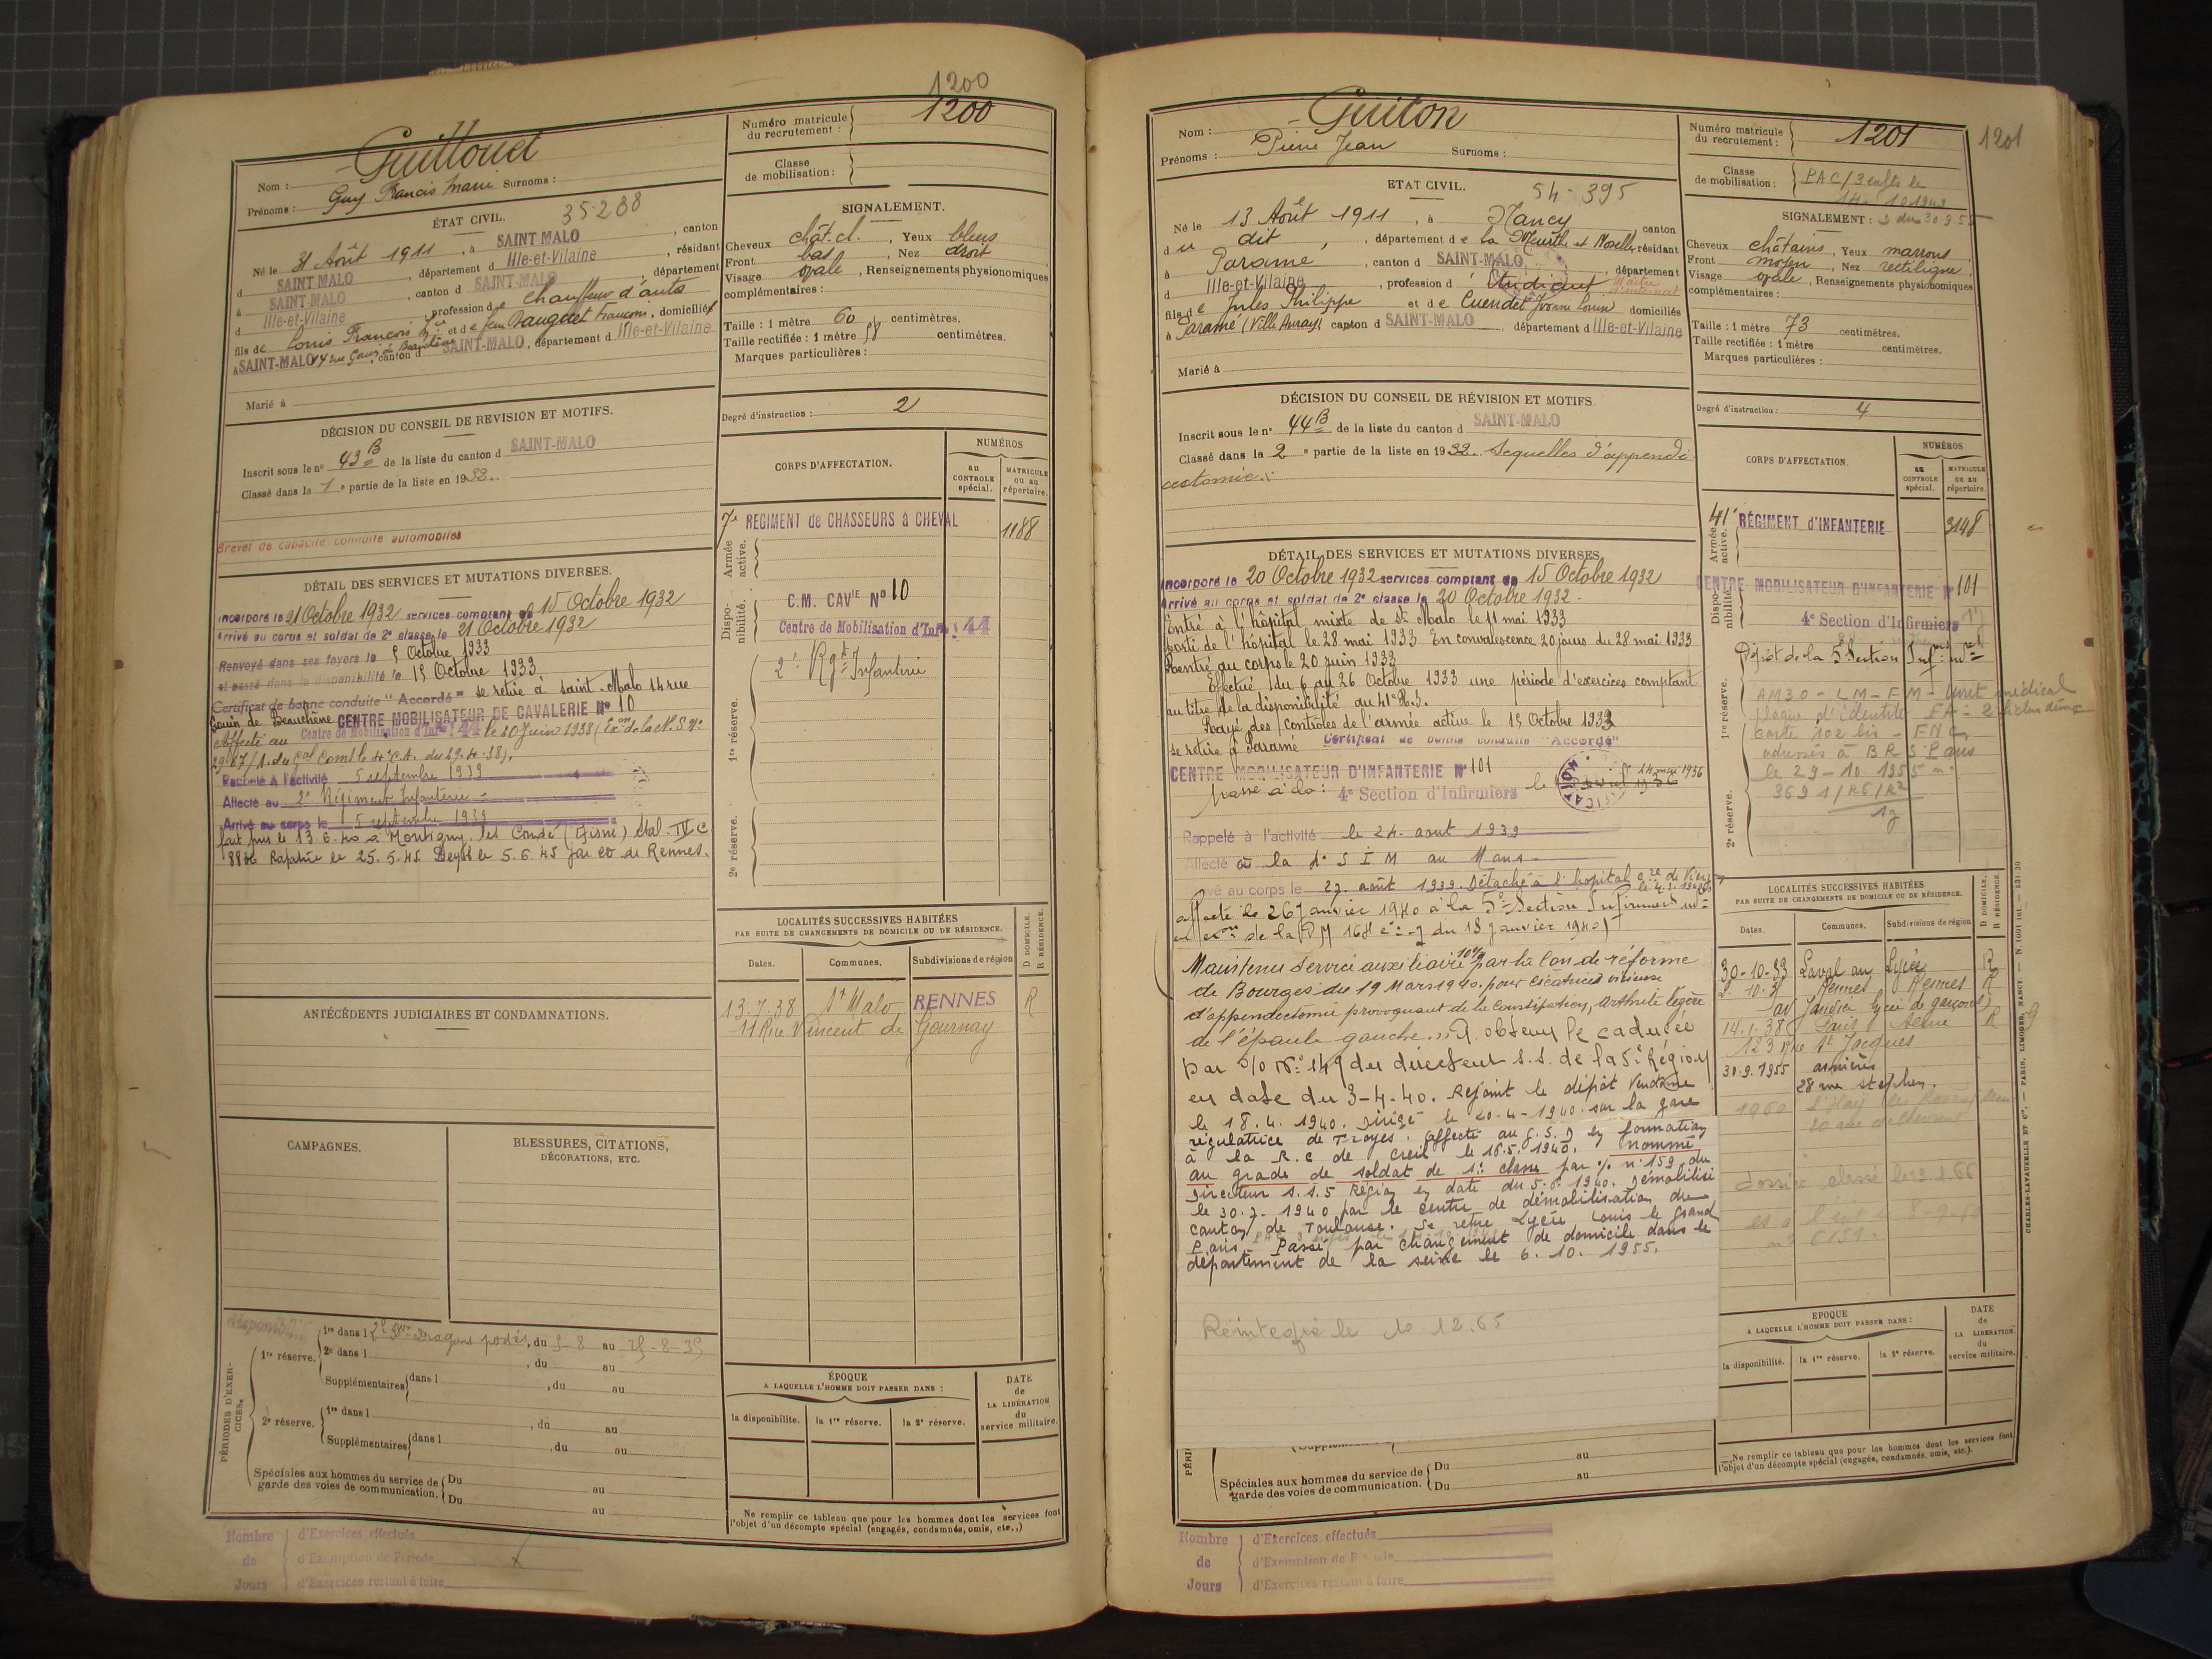 1200
Nom : Guillouet
Prénoms : Guy Francis Marie Surnoms :
Numéro matricule du recrutement : 1200
Classe de mobilisation :
ÉTAT CIVIL. 35-288
Né le 31 Août 1911, à SAINT MALO, canton
d SAINT MALO, département d Ille-et-Vilaine, résidant
à SAINT-MALO, canton d SAINT-MALO, département
d Ille-et-Vilaine, profession de Chauffeur d'auto
fils de Louis François et de feu Françoise, domiciliés
à SAINT-MALO 14 rue Gouin de Beauchêne, canton d SAINT-MALO, département d Ille-et-Vilaine
Marié à
SIGNALEMENT.
Cheveux chât. cl., Yeux bleus
Front bas, Nez droit
Visage ovale, Renseignements physionomiques
complémentaires :
Taille : 1 mètre 60 centimètres.
Taille rectifiée : 1 mètre 58 centimètres.
Marques particulières :
DÉCISION DU CONSEIL DE REVISION ET MOTIFS.
Inscrit sous le n° 43 B de la liste du canton d SAINT-MALO
Classé dans la 1e partie de la liste en 1932.
Brevet de capacité conduite automobiles
Degré d'instruction : 2
CORPS D'AFFECTATION.
NUMÉROS
au CONTROLE spécial.
MATRICULE ou au répertoire.
Armée active.
7e REGIMENT de CHASSEURS à CHEVAL 1188
Disponibilité.
C.M. CAVIE N° 10
Centre de Mobilisation d'Inf 44
1re réserve.
2e Rgt Infanterie
2e réserve.
DÉTAIL DES SERVICES ET MUTATIONS DIVERSES.
Incorporé le 21 Octobre 1932 services comptant du 15 Octobre 1932
Arrivé au corps et soldat de 2e classe le 21 Octobre 1932
Renvoyé dans ses foyers le 5 Octobre 1933
et passé dans la disponibilité le 15 Octobre 1933
Certificat de bonne conduite "Accordé" se retire à Saint-Malo 14 rue
Gouin de Beauchêne CENTRE MOBILISATEUR DE CAVALERIE N° 10
Affecté au Centre de Mobilisation d'Inf 44 le 20 Juin 1938 (Exon de la N. S. N°
2987/1. du Gal Comt le 4e C.A. du 29.4.38).
Rappelé à l'activité 5 septembre 1939
Affecté au 2e Régiment Infanterie
Arrivé au corps le 5 septembre 1939
fait pris le 13.6.40 à Montigny les Condé (Aisne) Stal. IV C
Rapatrié le 25.5.45 le 5.6.45 par de Rennes.
ANTÉCÉDENTS JUDICIAIRES ET CONDAMNATIONS.
LOCALITÉS SUCCESSIVES HABITÉES
PAR SUITE DE CHANGEMENTS DE DOMICILE OU DE RÉSIDENCE.
D DOMICILE. R RÉSIDENCE.
Dates. Communes. Subdivisions de région
13.7.38 St Malo RENNES R
11 Rue Vincent de Gournay
CAMPAGNES.
BLESSURES, CITATIONS,
DÉCORATIONS, ETC.
PÉRIODES D'EXERCICES.
disponibil
1re réserve.
1re dans l Dragons portés, du 5-8 au 25-8-35
2e dans l , du au
Supplémentaires dans l , du au
2e réserve.
1re dans l , du au
Supplémentaires dans l , du au
Spéciales aux hommes du service de garde des voies de communication.
Du au
Du au
ÉPOQUE
A LAQUELLE L'HOMME DOIT PASSER DANS :
la disponibilité. la 1re réserve. la 2e réserve.
DATE de LA LIBÉRATION du service militaire.
Ne remplir ce tableau que pour les hommes dont les services font
l'objet d'un décompte spécial (engagés, condamnés, omis, etc.,)
Nombre de Jours
d'Exercices effectués
d'Exemption de Période
d'Exercices restant à faire
Nom : Guiton
Prénoms : Pierre Jean Surnoms :
Numéro matricule du recrutement : 1201
1201
Classe de mobilisation : PAC/3 enfts le
14-10-1949
D du 30.9.55
ETAT CIVIL. 54-395
Né le 13 Août 1911, à Nancy, canton
du dit, département de la Meurthe et Moselle, résidant
à Paramé, canton d SAINT-MALO, département
d Ille-et-Vilaine, profession d' Etudiant Maître d'internat
fils de Jules Philippe et de Cuendet Yvonne, domiciliés
à Paramé (Ville Auray) canton d SAINT-MALO, département d Ille-et-Vilaine
Marié à
SIGNALEMENT :
Cheveux châtains, Yeux marrons,
Front moyen, Nez rectiligne,
Visage ovale, Renseignements physionomiques
complémentaires :
Taille : 1 mètre 73 centimètres.
Taille rectifiée : 1 mètre centimètres.
Marques particulières :
DÉCISION DU CONSEIL DE RÉVISION ET MOTIFS.
Inscrit sous le n° 44 B de la liste du canton d SAINT-MALO
Classé dans la 2e partie de la liste en 1932. Sequelles d'appendi
cectomie.
Degré d'instruction : 4
CORPS D'AFFECTATION.
NUMÉROS
au CONTROLE spécial.
MATRICULE ou au répertoire.
Armée active.
41e RÉGIMENT d'INFANTERIE 3148
Disponibilité.
CENTRE MOBILISATEUR D'INFANTERIE N° 101
4e Section d'Infirmiers
Dépôt de la 5e Section Infiers mres
1re réserve.
AM30 - LM - FM - livret médical
plaque d'identité
carte 102 bis -
adressés à B R S Paris
le 29-10 1955
3691/R6/R2
2e réserve.
DÉTAIL DES SERVICES ET MUTATIONS DIVERSES.
Incorporé le 20 Octobre 1932 services comptant du 15 Octobre 1932
Arrivé au corps et soldat de 2e classe le 20 Octobre 1932.
Entré à l'hôpital mixte de St Malo le 11 mai 1933
Sorti de l'hôpital le 28 mai 1933 En convalescence 20 jours du 28 mai 1933
Rentré au corps le 20 juin 1933
Effectué du 6 au 26 Octobre 1933 une période d'exercices comptant
au titre de la disponibilité au 41e R.I.
Rayé des contrôles de l'armée active le 15 Octobre 1933
se retire à Paramé Certificat de bonne conduite "Accordé"
CENTRE MOBILISATEUR D'INFANTERIE N° 101
passé à la : 4e Section d'Infirmiers le 24 mai 1936
Rappelé à l'activité le 24 aout 1939
Affecté à la 4e S I M au Mans
Arrivé au corps le 27 août 1939. Détaché à l'hopital
affecté le 26 Janvier 1940 à la 5e Section Infirmiers mres
en exon de la DM du 13 Janvier 1940
Maintenu Service auxiliaire 10% par la Con de réforme
de Bourges du 19 Mars 1940. pour cicatrice vicieuse
d'appendectomie provoquant de la constipation, arthrite légère
de l'épaule gauche. A obtenu le caducée
par D/O N° 149 du directeur S.S. de la 5e Région
en date du 3-4-40. Rejoint le dépôt Vendôme
le 18.4.1940. dirigé le 20-4-1940. sur la gare
régulatrice de Troyes. affecté au en formation
à la de Creil le 16.5.1940. nommé
au grade de soldat de 1e classe par n° 159 du
directeur S.S. 5 Région en date du 5.6.1940. démobilisé
le 30.7.1940 par le centre de démobilisation du
canton de Toulouse. Se retire Lycée Louis le Grand
Paris. Passé par changement de domicile dans le
département de la seine le 6.10.1955.
Réintégré le 10 12.65
LOCALITÉS SUCCESSIVES HABITÉES
PAR SUITE DE CHANGEMENTS DE DOMICILE OU DE RÉSIDENCE.
D DOMICILE. R RÉSIDENCE.
Dates. Communes. Subdivisions de région
30-10-33 Laval au Lycée R
Rennes Rennes R
av Janvier lycée de garçons
14.1.38 Paris Seine R
123 rue St Jacques
30.9.1955 asnières
28 rue stephen.
1960 l'Haÿ les Roses
dossier classé le
ÉPOQUE
A LAQUELLE L'HOMME DOIT PASSER DANS :
la disponibilité. la 1re réserve. la 2e réserve.
DATE de LA LIBÉRATION du service militaire.
Ne remplir ce tableau que pour les hommes dont les services font
l'objet d'un décompte spécial (engagés, condamnés, omis, etc.).
Spéciales aux hommes du service de garde des voies de communication.
Du au
Du au
Nombre de Jours
d'Exercices effectués
d'Exemption de Période
d'Exercices restant à faire
CHARLES-LAVAUZELLE ET Cie. — PARIS, LIMOGES, NANCY.